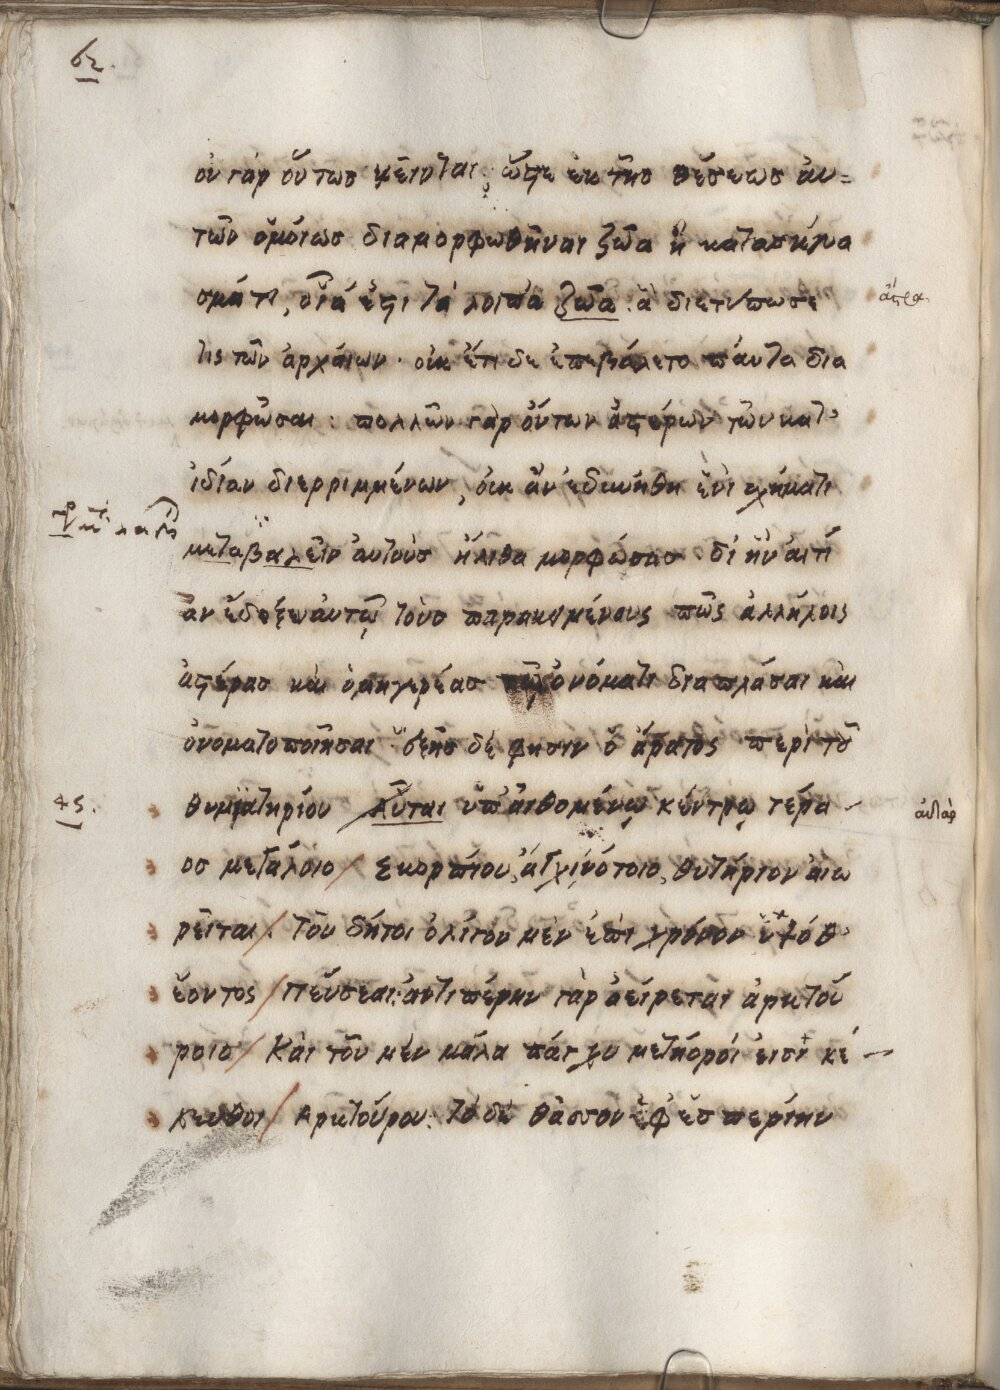 οὐ γάρ οὕτως κεῖνται, ὥστε ἐκ τῆς θέσεως αὐ=
τῶν ὁμόιως διαμορφωθῆναι ζῶα ἢ κατασκευα
σμάτι, οἷά ἐστι τὰ λοιπὰ ζῶα ἃ διετύπωσε
ἄστρα
τις τῶν ἀρχάιων. οὐκ ἔτι δε ἐπεβάλετο πάντα δια
μορφῶσαι: πολλῶν γὰρ ὄντων ἀστέρων τῶν κατ'
ἰδίαν διερριμμένων, οὐκ ἂν ἐδυνήθη ἑνὶ σχήματι
μεταβαλεῖν ἀυτοὺς ἤλιθα μορφώσας δι' ἣν αἰτί
αν ἔδοξεν ἀυτῷ τοὺς παρακειμένους πῶς ἀλλήλοις
ἀστέρας καὶ ὁμηγερέας ὀνόματι διαπλάσαι καὶ
ὀνοματοποιῆσαι ἑξῆς δέ φησιν ὁ ἄρατος περὶ τοῦ
45.
θυμιατηρίου / Αὗται ὑπ' ἀιθομένῳ κέντρῳ τέρα -
ἀυτὰρ
ος μεγάλοιο / Σκορπίου, ἄγχι νότοιο, θυτήριον ἀιω
ρεῖται / Τοῦ δήτοι ὀλίγον μὲν ἐπὶ χρόνον ὑψόθ'
ἐοντος / Πεύσεαι: ἀντιπέρην γὰρ ἀείρεται ἀρκτού
ροιο / Καὶ τοῦ μέν μάλα πάγχυ μετήοροί εισι κέ -
λευθοι / Ἀρκτούρου: τὸ δὲ θᾶσσον ὑφ' ἑσπερίην